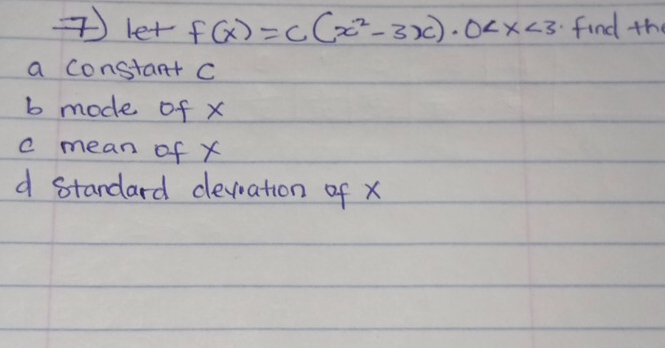 7) let f(x) = c(x² - 3x). 0<x<3. find the
a constant c
b mode of x
c mean of x
d standard deviation of x